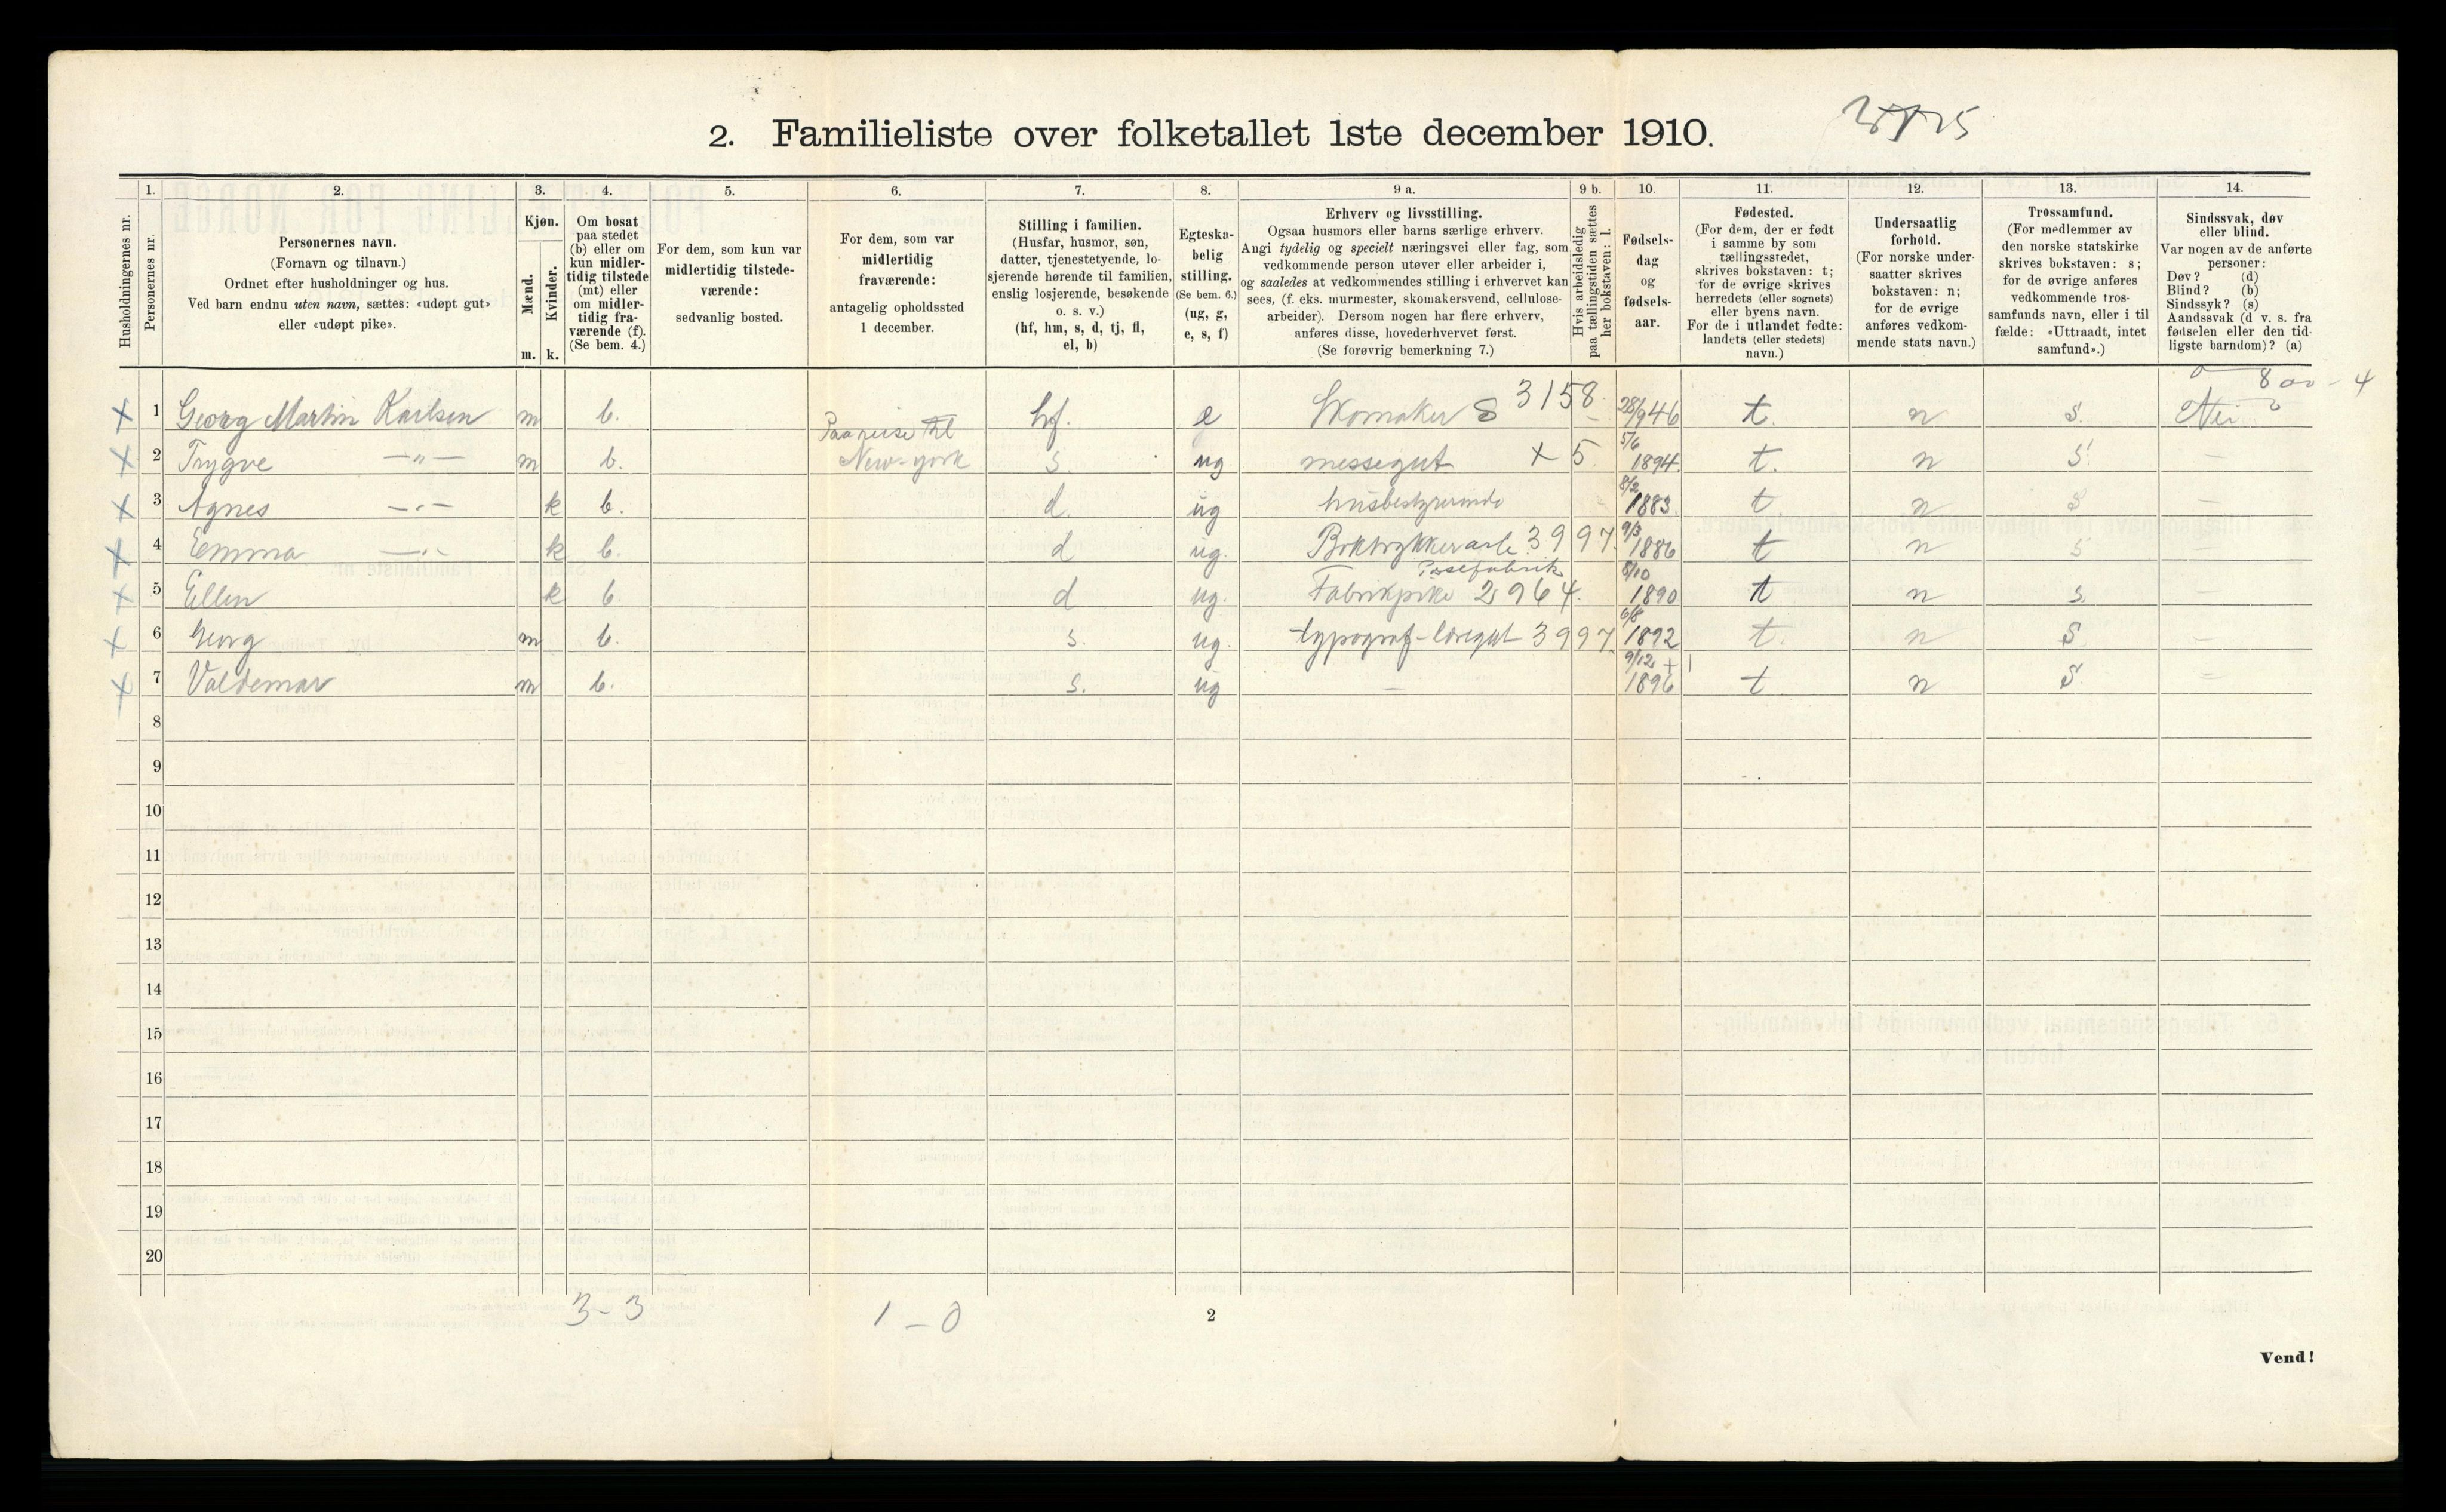 2. Familieliste over folketallet 1ste december 1910.
Husholdningernes nr.
1. Personernes nr.
2. Personernes navn.
(Fornavn og tilnavn.)
Ordnet efter husholdninger og hus.
Ved barn endnu uten navn, sættes: «udøpt gut»
eller «udøpt pike».
3. Kjøn.
Mænd. m.
Kvinder. k.
4. Om bosat
paa stedet
(b) eller om
kun midler-
tidig tilstede
(mt) eller
om midler-
tidig fra-
værende (f).
(Se bem. 4.)
5. For dem, som kun var
midlertidig tilstede-
værende:
sedvanlig bosted.
6. For dem, som var
midlertidig
fraværende:
antagelig opholdssted
1 december.
7. Stilling i familien.
(Husfar, husmor, søn,
datter, tjenestetyende, lo-
sjerende hørende til familien,
enslig losjerende, besøkende
o. s. v.)
(hf, hm, s, d, tj, fl,
el, b)
8. Egteska-
belig
stilling.
(Se bem. 6.)
(ug, g,
e, s, f)
9 a. Erhverv og livsstilling.
Ogsaa husmors eller barns særlige erhverv.
Angi tydelig og specielt næringsvei eller fag, som
vedkommende person utøver eller arbeider i,
og saaledes at vedkommendes stilling i erhvervet kan
sees, (f. eks. murmester, skomakersvend, cellulose-
arbeider). Dersom nogen har flere erhverv,
anføres disse, hovederhvervet først.
(Se forøvrig bemerkning 7.)
9 b. Hvis arbeidsledig
paa tællingstiden sættes
her bokstaven: l.
10. Fødsels-
dag
og
fødsels-
aar.
11. Fødested.
(For dem, der er født
i samme by som
tællingsstedet,
skrives bokstaven: t;
for de øvrige skrives
herredets (eller sognets)
eller byens navn.
For de i utlandet fødte:
landets (eller stedets)
navn.)
12. Undersaatlig
forhold.
(For norske under-
saatter skrives
bokstaven: n;
for de øvrige
anføres vedkom-
mende stats navn.)
13. Trossamfund.
(For medlemmer av
den norske statskirke
skrives bokstaven: s;
for de øvrige anføres
vedkommende tros-
samfunds navn, eller i til
fælde: «Uttraadt, intet
samfund».)
14. Sindssvak, døv
eller blind.
Var nogen av de anførte
personer:
Døv? (d)
Blind? (b)
Sindssyk? (s)
Aandssvak (d v. s. fra
fødselen eller den tid-
ligste barndom)? (a)
800 - 4
x 1 Georg Martin Karlsen m b. hf. e Skomaker S 3158 - 28/9 46 t. n s. Nei
x 2 Trygve —"— m b. Paa reise til New-york s. ug messegut x 5 5/6 1894. t. n s. —
x 3 Agnes —"— k b. d ug husbestyrerinde 8/2 1883. t n s —
x 4 Emma —"— k b. d ug. Boktrykkerarb. 3997. 9/3 1886 t n s —
x 5 Ellen k b. d ug. Fabrikpike Posefabrik 2964. 8/10 1890 t n s. —
x 6 Georg m b. s. ug. typograf-læregut 3997. 6/8 1892 t. n s —
x 7 Valdemar m b. s. ug — 9/12 + 1896 t n s —
8
9
10
11
12
13
14
15
16
17
18
19
20
3 - 3
1 - 0
2
Vend!